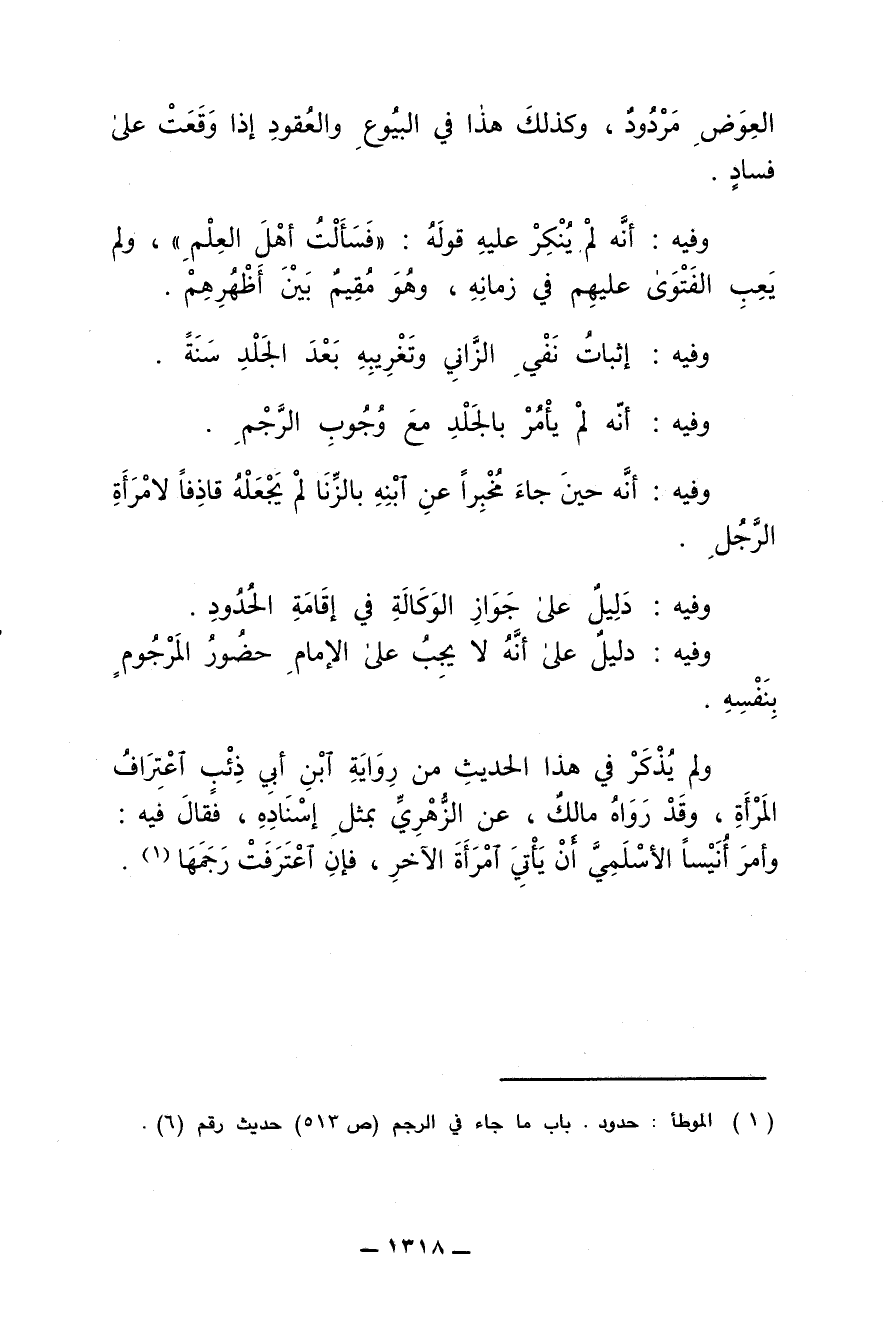 العِوَضِ مَرْدُودٌ ، وكذلكَ هذٰا في البيُوعِ والعُقودِ إذا وَقَعَتْ علىٰ
فسادٍ .
وفيه : أنَّه لمْ يُنْكِرْ عليهِ قولَهُ : «فَسَأَلْتُ أهْلَ العِلْمِ» ، ولم
يَعِبِ الفَتْوَىٰ عليهِم في زمانِهِ ، وهُوَ مُقِيمٌ بَيْنَ أَظْهُرِهِمْ .
وفيه : إثباتُ نَفْيِ الزَّاني وتَغْرِيبِهِ بَعْدَ الجَلْدِ سَنَةً .
وفيه : أنّه لمْ يأْمُرْ بالجَلْدِ معَ وُجُوبِ الرَّجْمِ .
وفيه : أنَّه حينَ جاءَ مُخْبِراً عنِ ٱبْنِهِ بالزِّنَا لمْ يَجْعَلْهُ قاذِفاً لامْرَأَةِ
الرَّجُلِ .
وفيه : دَلِيلٌ علىٰ جَوَازِ الوَكَالَةِ في إقَامَةِ الحُدُودِ .
وفيه : دليلٌ علىٰ أنَّهُ لا يجِبُ علىٰ الإمامِ حضُورُ المَرْجُومِ
بِنَفْسِهِ .
ولم يُذْكَرْ في هذا الحديثِ من رِوَايَةِ ٱبْنِ أبي ذِئْبٍ ٱعْتِرَافُ
المَرْأَةِ ، وقَدْ رَوَاهُ مالكٌ ، عن الزُّهْرِيِّ بمثلِ إسْنَادِهِ ، فقالَ فيه :
وأمرَ أُنَيْساً الأسْلَمِيَّ أَنْ يَأْتيَ ٱمْرَأَةَ الآخرِ ، فإنِ ٱعْتَرَفَتْ رَجَمَهَا (١) .
(١) الموطأ : حدود . باب ما جاء في الرجم (ص ٥١٣) حديث رقم (٦) .
– ١٣١٨ –